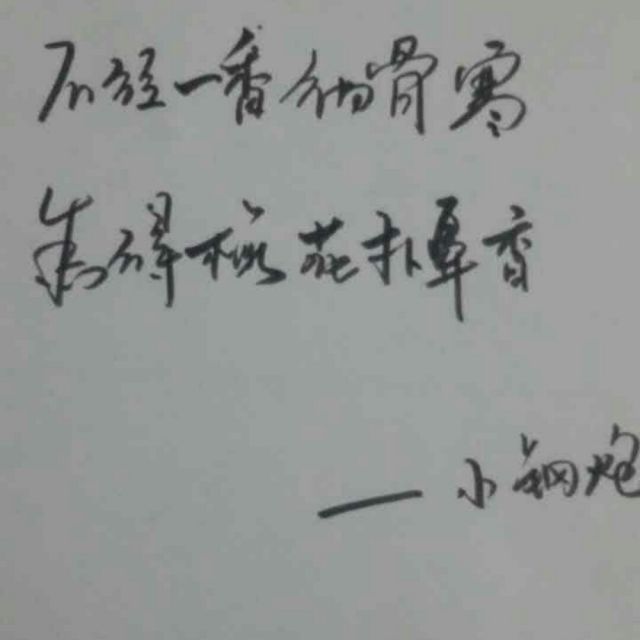 不经一番彻骨寒
焉得梅花扑鼻香
—小钢炮